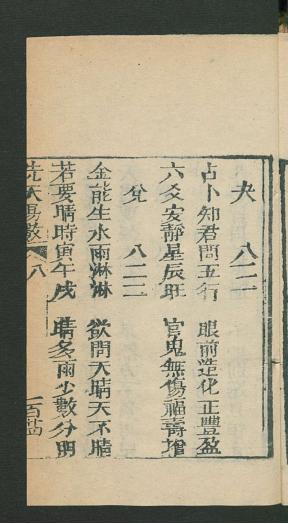 夬 八二一
占卜知君問五行 眼前造化正豐盈
六爻安靜星辰旺 官鬼無傷福壽增
兌 八二二
金能生水雨淋淋 欲問天晴天不晴
若要晴時寅午戌 晴多雨少數分明
先天易數 八